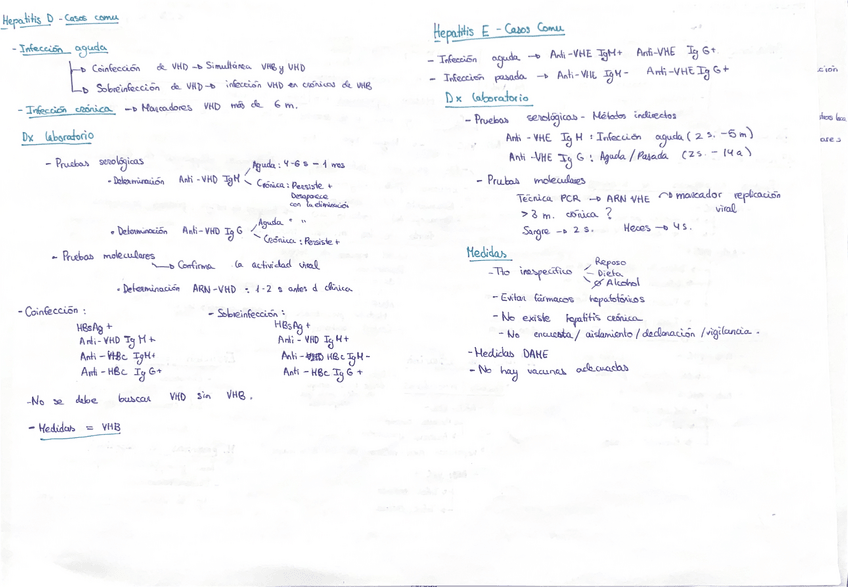 Hepatitis D - Casos comu
- Infección aguda
↳ Coinfección de VHD → Simultánea VHB y VHD
↳ Sobreinfección de VHD → infección VHD en crónicos de VHB
- Infección crónica → Marcadores VHD más de 6 m.
Dx laboratorio
- Pruebas serológicas
• Determinación Anti-VHD IgM
Aguda: 4-6 s - 1 mes
Crónica: Persiste +
Desaparece
con la eliminación
• Determinación Anti-VHD IgG
Aguda " "
Crónica: Persiste +
- Pruebas moleculares
→ Confirma la actividad viral
• Determinación ARN-VHD : 1-2 s antes d clínica
- Coinfección :
HBsAg +
Anti-VHD IgM +
Anti-HBc IgM+
Anti-HBc IgG+
- Sobreinfección :
HBsAg +
Anti-VHD IgM+
Anti-HBc IgM-
Anti-HBc IgG +
- No se debe buscar VHD sin VHB.
- Medidas = VHB
Hepatitis E - Casos Comu
- Infección aguda → Anti-VHE IgM+ Anti-VHE IgG+
- Infección pasada → Anti-VHE IgM- Anti-VHE IgG+
Dx laboratorio
- Pruebas serológicas - Métodos indirectos
Anti-VHE IgM : Infección aguda (2 s. - 5 m)
Anti-VHE IgG : Aguda / Pasada (2s. - 14 a)
- Prubas moleculares
Técnica PCR → ARN VHE → marcador replicación
viral
> 3 m. crónica ?
Sangre → 2 s. Heces → 4 s.
Medidas
- Tto inespecífico
Reposo
Dieta
Ø Alcohol
- Evitar fármacos hepatotóxicos
- No existe hepatitis crónica
- No encuesta / aislamiento / declaración / vigilancia.
- Medidas DAME
- No hay vacunas adecuadas